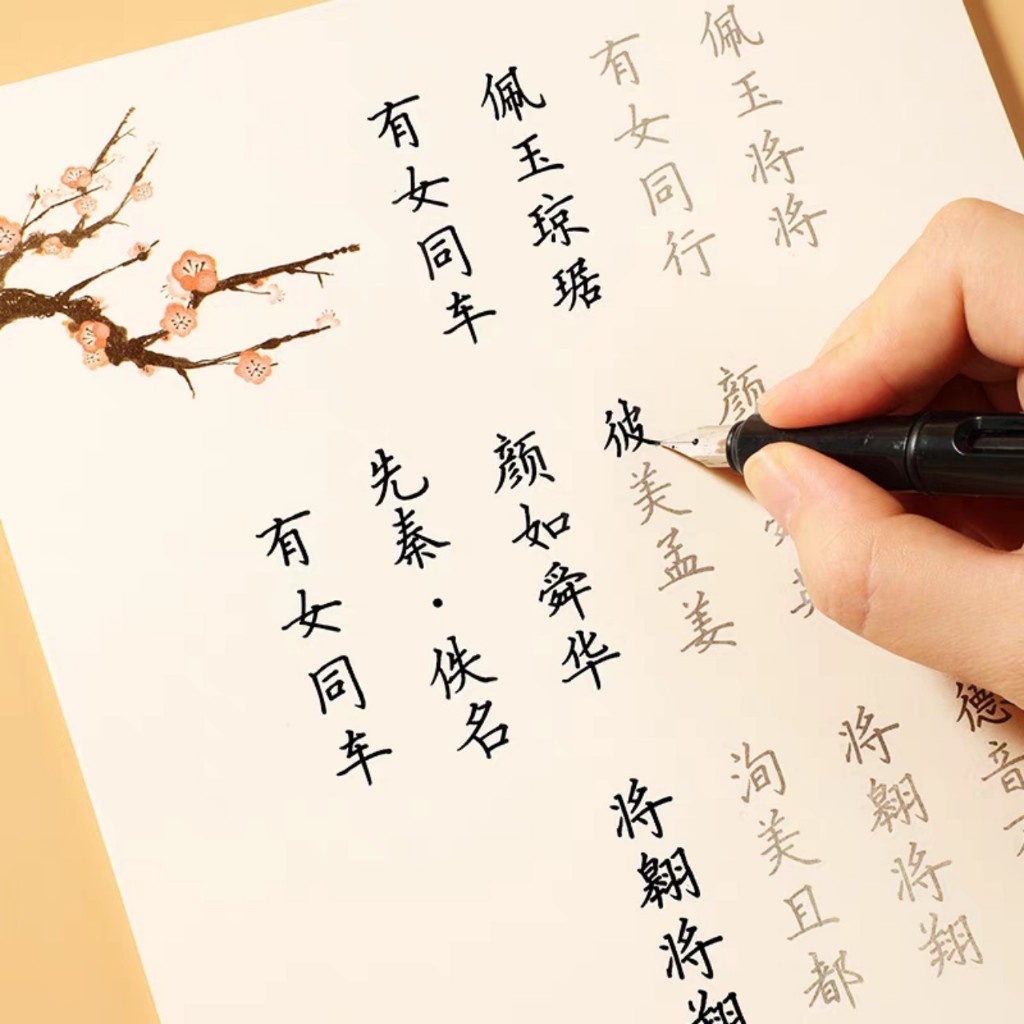 有女同车
先秦·佚名
有女同车
颜如舜华
将翱将翔
佩玉琼琚
彼美孟姜
洵美且都
有女同行
颜
将翱将翔
佩玉将将
德音